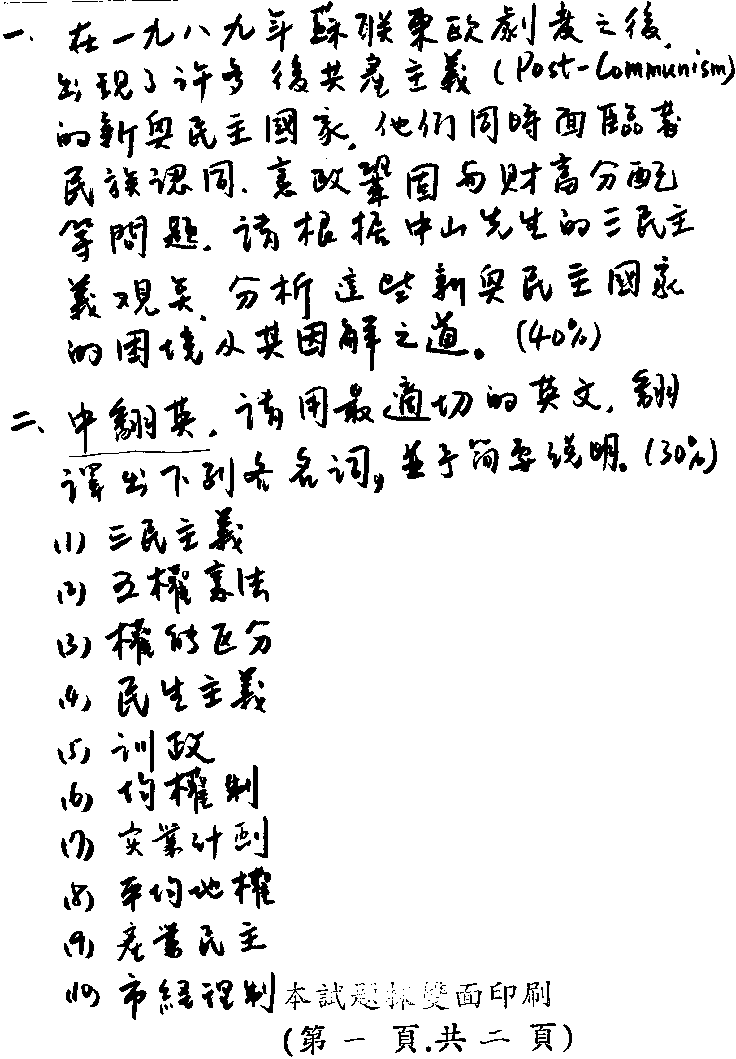 一、在一九八九年蘇联東欧劇変之後,
出現了許多後共産主義(Post-Communism)
的新興民主國家,他們同時面臨着
民族認同、憲政鞏固与財富分配
等問題,請根据中山先生的三民主
義观点,分析這些新興民主國家
的困境及其因解之道。(40%)
二、中翻英,請用最適切的英文,翻
譯出下列各名词,並予简要说明。(30%)
(1) 三民主義
(2) 五權憲法
(3) 權能区分
(4) 民生主義
(5) 训政
(6) 均權制
(7) 实業计画
(8) 平均地權
(9) 産業民主
(10) 市経理制
本試題採雙面印刷
(第一頁.共二頁)